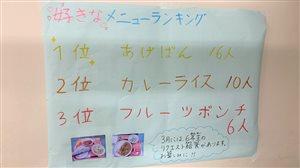 好きなメニューランキング
1位 あげぱん 16人
2位 カレーライス 10人
3位 フルーツポンチ 6人
3月には、6年生の
リクエスト給食があります。
お楽しみに!!